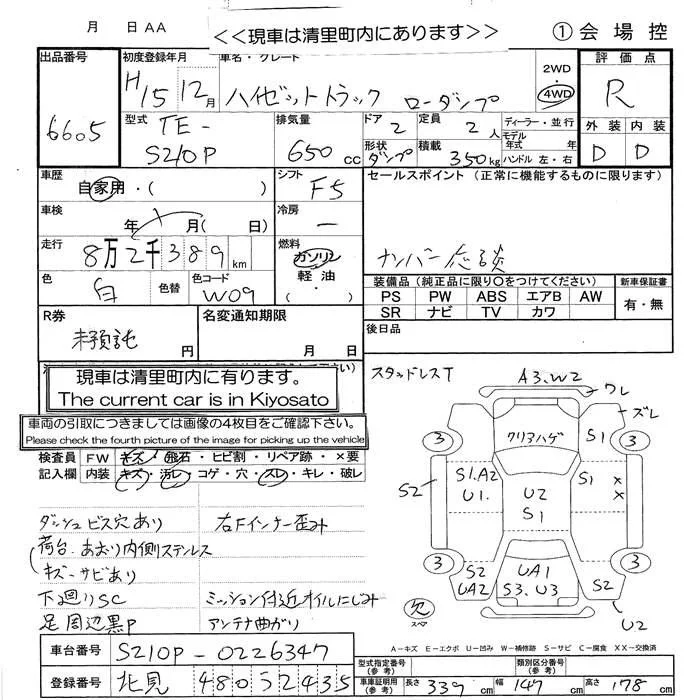 月 日 AA
<<現車は清里町内にあります>>
① 会場控
出品番号
6605
初度登録年月
H15 12月
車名・グレード
ハイゼットトラック ローダンプ
2WD
・
4WD
評価点
R
型式
TE-
S210P
排気量
650cc
ドア
2
定員
2人
ディーラー・並行
モデル
年式 年
ハンドル 左・右
形状
ダンプ
積載
350kg
外装 内装
D D
車歴
自家用・( )
シフト
F5
セールスポイント (正常に機能するものに限ります)
車検
年 月( 日)
冷房
ー
走行
8万2千389km
燃料
ガソリン
軽油
・( )
ナンバー応談
色
白
色替
色コード
W09
装備品(純正品に限り○をつけてください)
新車保証書
PS PW ABS エアB AW
SR ナビ TV カワ
有・無
R券
未預託
円
名変通知期限
月 日
後日品
現車は清里町内に有ります。
The current car is in Kiyosato
車両の引取につきましては画像の4枚目をご確認下さい。
Please check the fourth picture of the image for picking up the vehicle
検査員 FW キズ・飛石・ヒビ割・リペア跡・×要
記入欄 内装 キズ・汚レ・コゲ・穴・スレ・キレ・破レ
ダッシュビス穴あり
右Fインナー歪み
荷台.あおり内側ステンレス
キズ・サビあり
下廻りSC
ミッション付近オイルにじみ
足周辺黒P
アンテナ曲がり
スタッドレスT
A3.W2
ワレ
ズレ
3
クリアハゲ
S1
3
S2
S1.A2
U1.
U2
S1
S1
×
×
3
S2
UA2
UA1
S3.U3
S2
3
U2
欠
スペア
A-キズ E-エクボ U-凹み W-補修跡 S-サビ C-腐食 XX-交換済
車台番号
S210P-0226347
登録番号
北見 480 そ 2435
型式指定番号
(参考)
類別区分番号
(参考)
車庫証明用
(参考)
長さ 339cm
幅 147cm
高さ 178cm